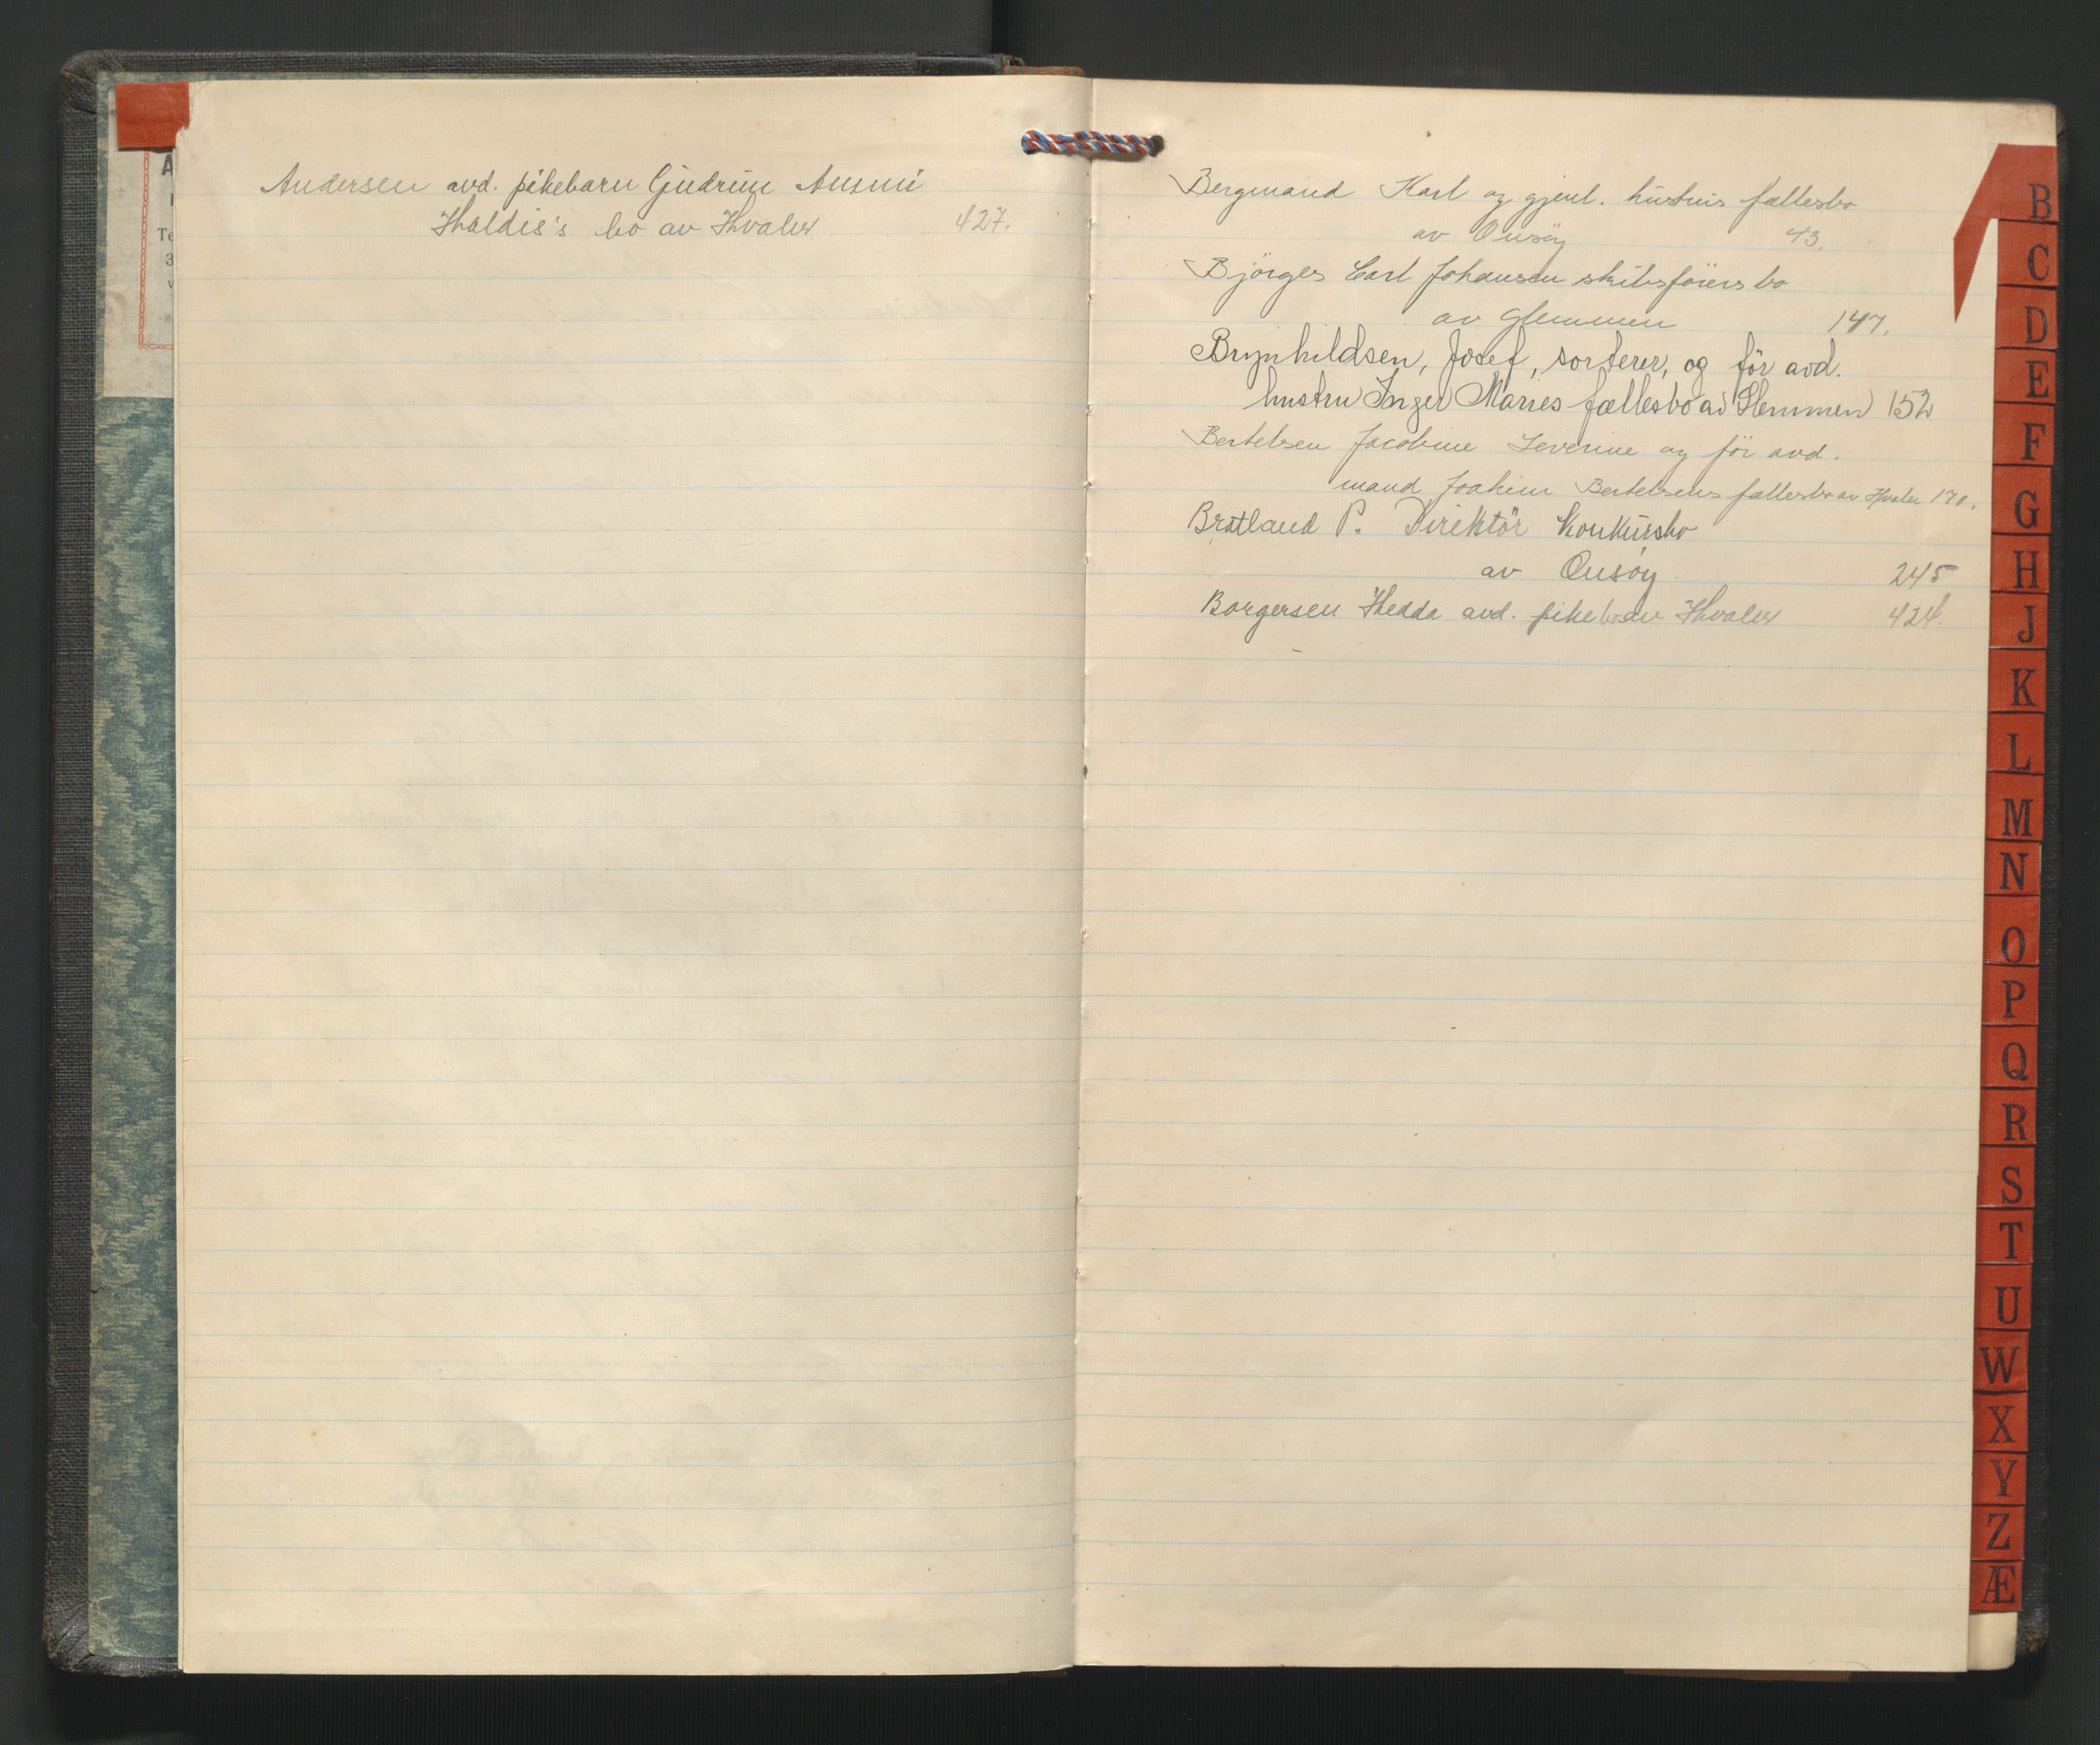 A
Te
3
Andersen avd. pikebarn Gudrun Ammi
Haldis's bo av Hvaler 427.
Bergmand Karl og gjenl. hustrus fællesbo
av Onsöy 43.
Björges Carl Johansen skibsförers bo
av Glemmen 147.
Brynhildsen, Josef, sorterer, og för avd.
hustru Inger Maries fællesbo av Glemmen 152
Bertelsen Jacobine Severine og för avd.
mand Joakim Bertelsens fællesbo av Hvaler 170.
Bratland P. Direktör Konkursbo
av Onsöy 245
Borgersen Hedda avd. pike bo av Hvaler 424.
B
C
D
E
F
G
H
J
K
L
M
N
O
P
Q
R
S
T
U
W
X
Y
Z
Æ